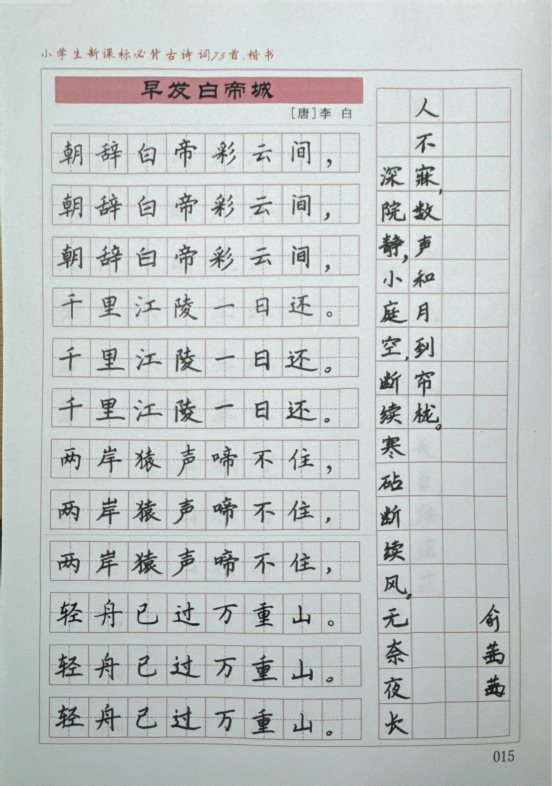 小学生新课标必背古诗词75首.楷书
早发白帝城
[唐]李 白
朝辞白帝彩云间，
朝辞白帝彩云间，
朝辞白帝彩云间，
千里江陵一日还。
千里江陵一日还。
千里江陵一日还。
两岸猿声啼不住，
两岸猿声啼不住，
两岸猿声啼不住，
轻舟已过万重山。
轻舟已过万重山。
轻舟已过万重山。
深院静，小庭空，断续寒砧断续风。无奈夜长
人不寐，数声和月到帘栊。
俞茜茜
015